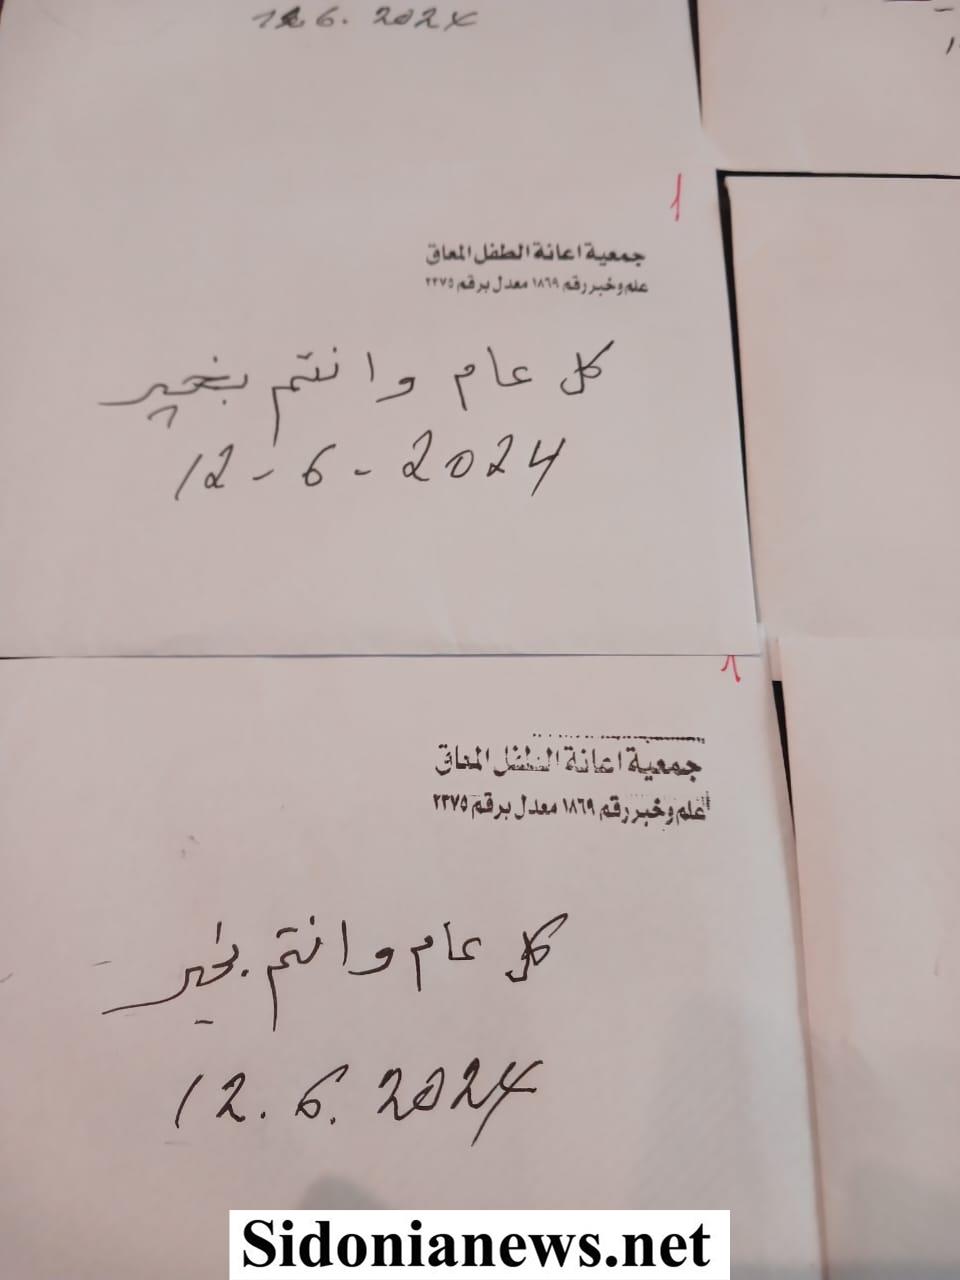 12.6.2024
١
جمعية اعانة الطفل المعاق
علم وخبر رقم ١٨٦٩ معدل برقم ٢٣٧٥
كل عام وانتم بخير
12-6-2024
جمعية اعانة الطفل المعاق
علم وخبر رقم ١٨٦٩ معدل برقم ٢٣٧٥
كل عام وانتم بخير
12.6.2024
Sidonianews.net